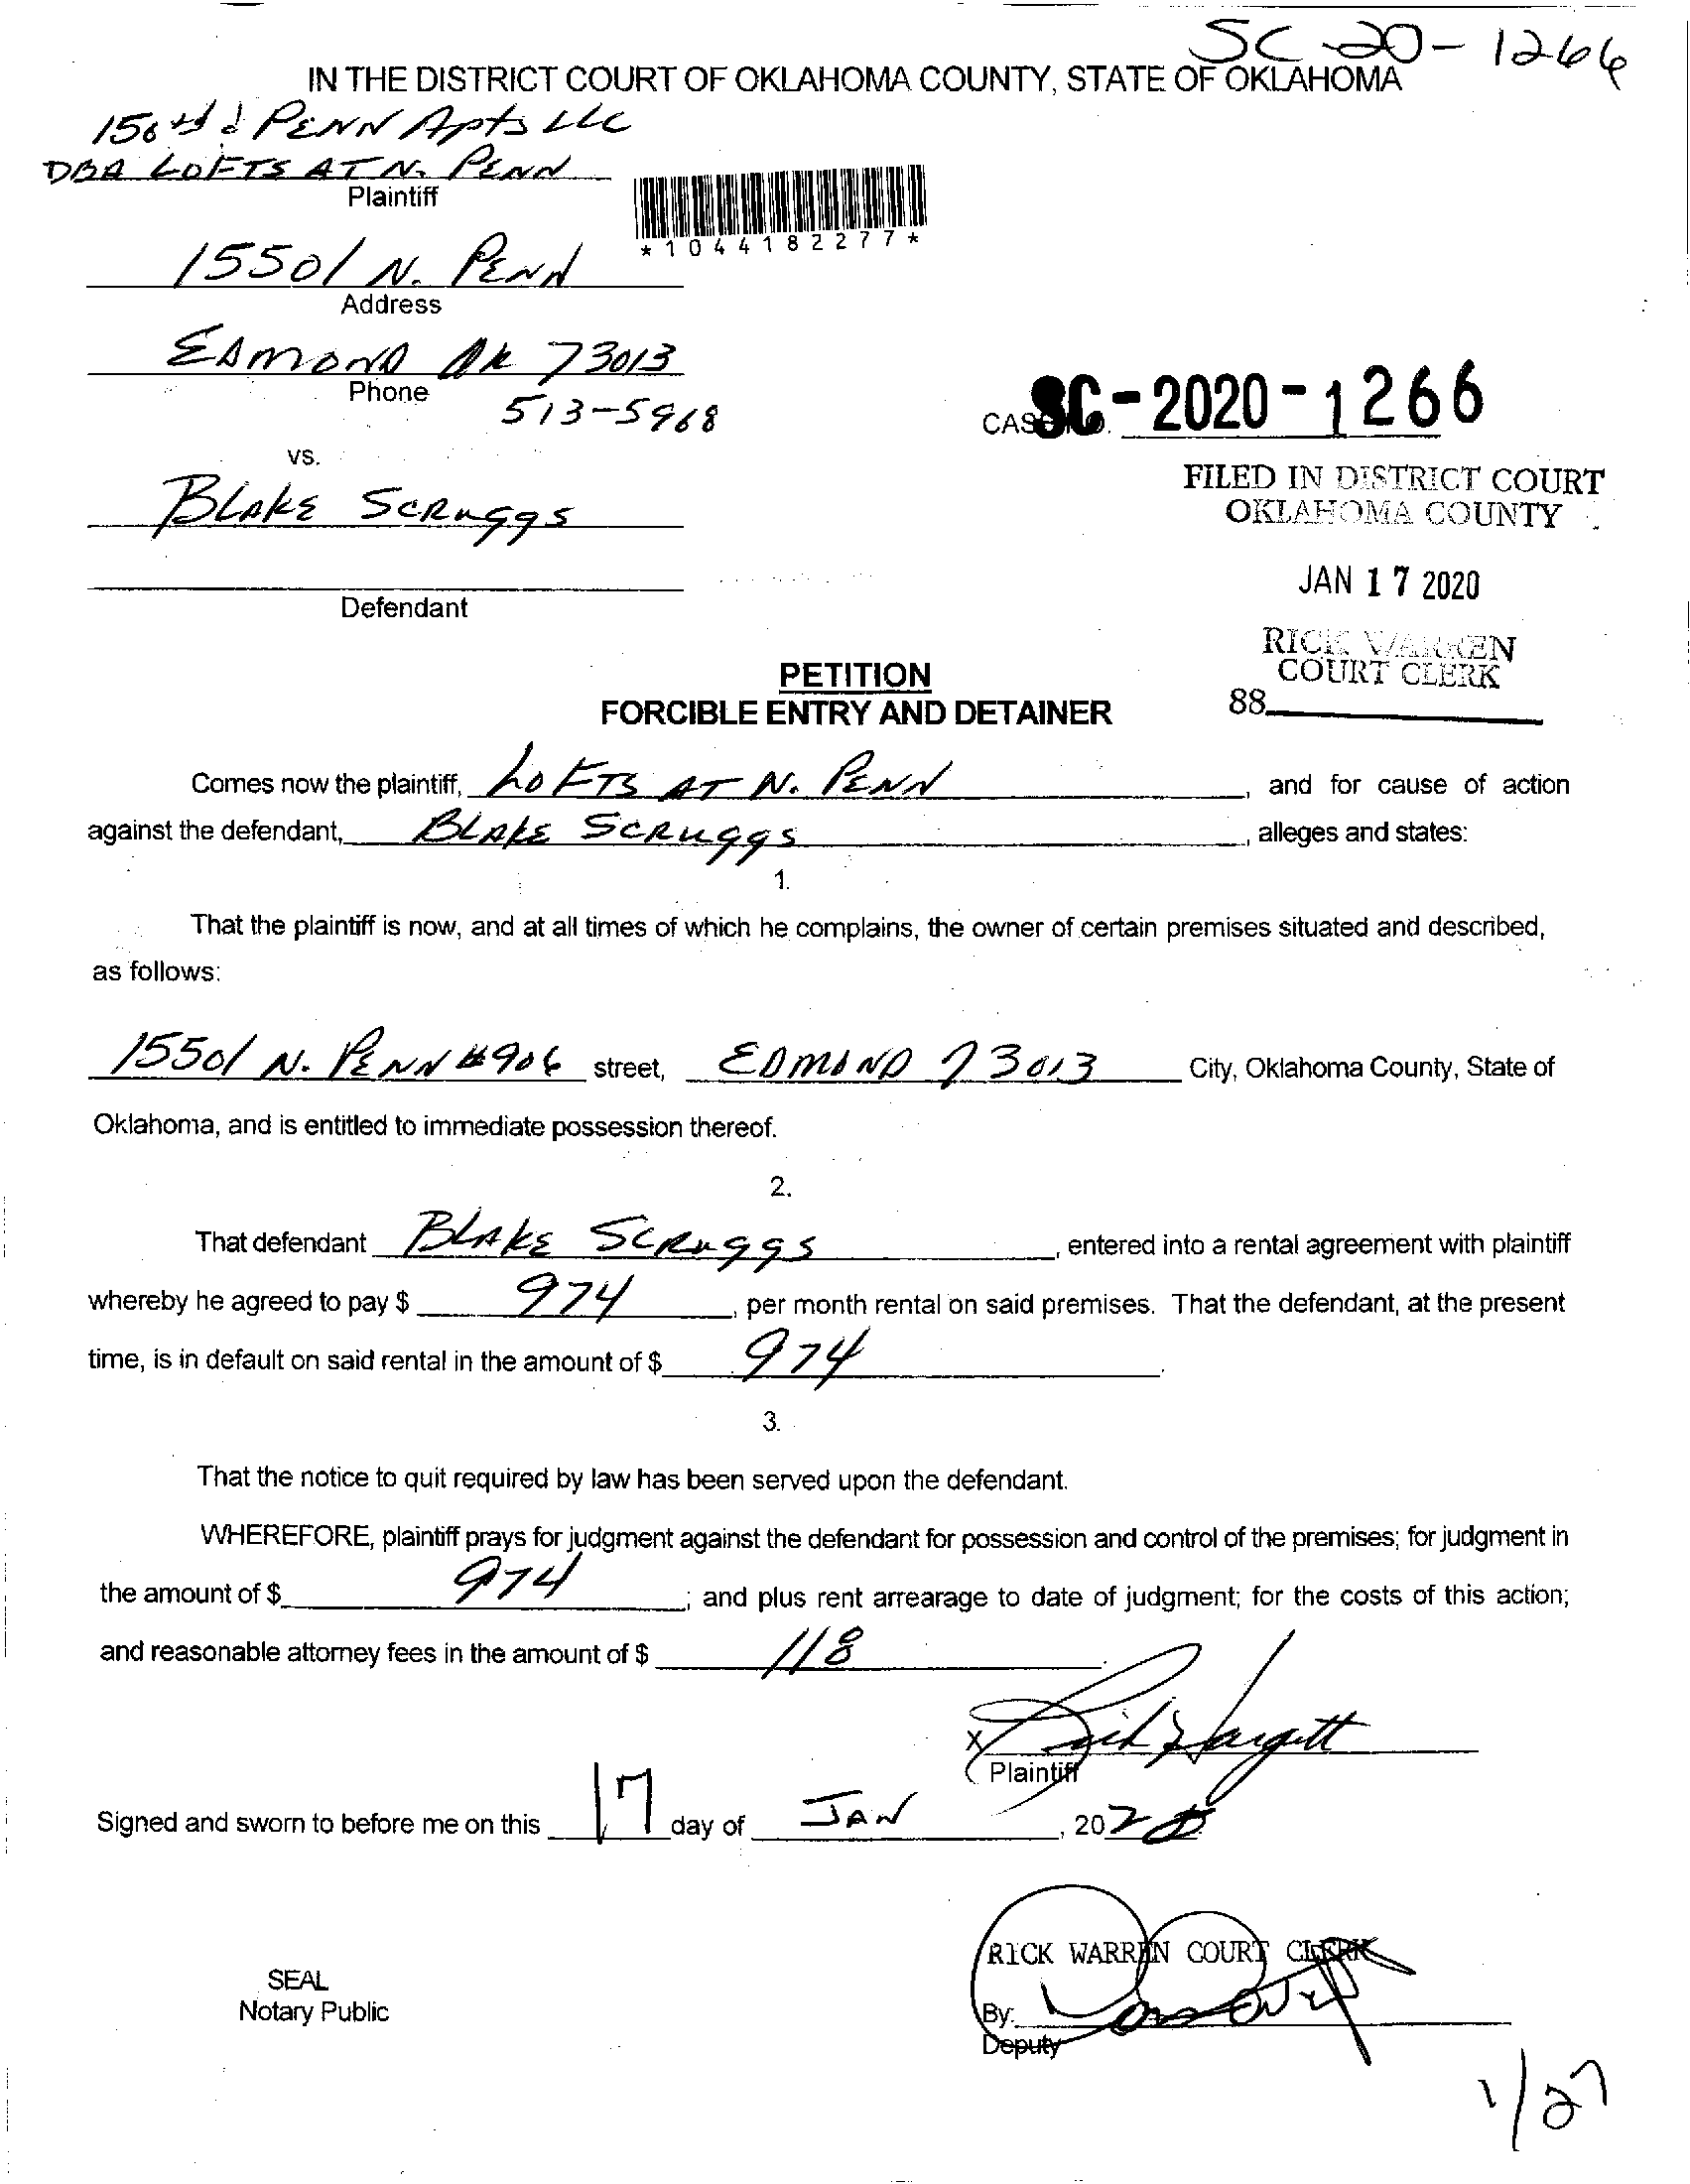 SC-20-1266
IN THE DISTRICT COURT OF OKLAHOMA COUNTY, STATE OF OKLAHOMA
150th & PENN Apts LLC
DBA LOFTS AT N. PENN
Plaintiff
*1044182277*
15501 N. PENN
Address
EDMOND OK 73013
Phone
513-5968
CASE NO. SC-2020-1266
vs.
FILED IN DISTRICT COURT
OKLAHOMA COUNTY
BLAKE SCRUGGS
JAN 17 2020
Defendant
RICK WARREN
COURT CLERK
88
PETITION
FORCIBLE ENTRY AND DETAINER
Comes now the plaintiff, LOFTS AT N. PENN, and for cause of action
against the defendant, BLAKE SCRUGGS, alleges and states:
1.
That the plaintiff is now, and at all times of which he complains, the owner of certain premises situated and described,
as follows:
15501 N. PENN #906 street, EDMOND 73013 City, Oklahoma County, State of
Oklahoma, and is entitled to immediate possession thereof.
2.
That defendant BLAKE SCRUGGS, entered into a rental agreement with plaintiff
whereby he agreed to pay $ 974, per month rental on said premises. That the defendant, at the present
time, is in default on said rental in the amount of $ 974.
3.
That the notice to quit required by law has been served upon the defendant.
WHEREFORE, plaintiff prays for judgment against the defendant for possession and control of the premises; for judgment in
the amount of $ 974; and plus rent arrearage to date of judgment; for the costs of this action;
and reasonable attorney fees in the amount of $ 118
X
Plaintiff
Signed and sworn to before me on this 17 day of JAN, 2020
RICK WARREN COURT CLERK
SEAL
Notary Public
By:
Deputy
1/27